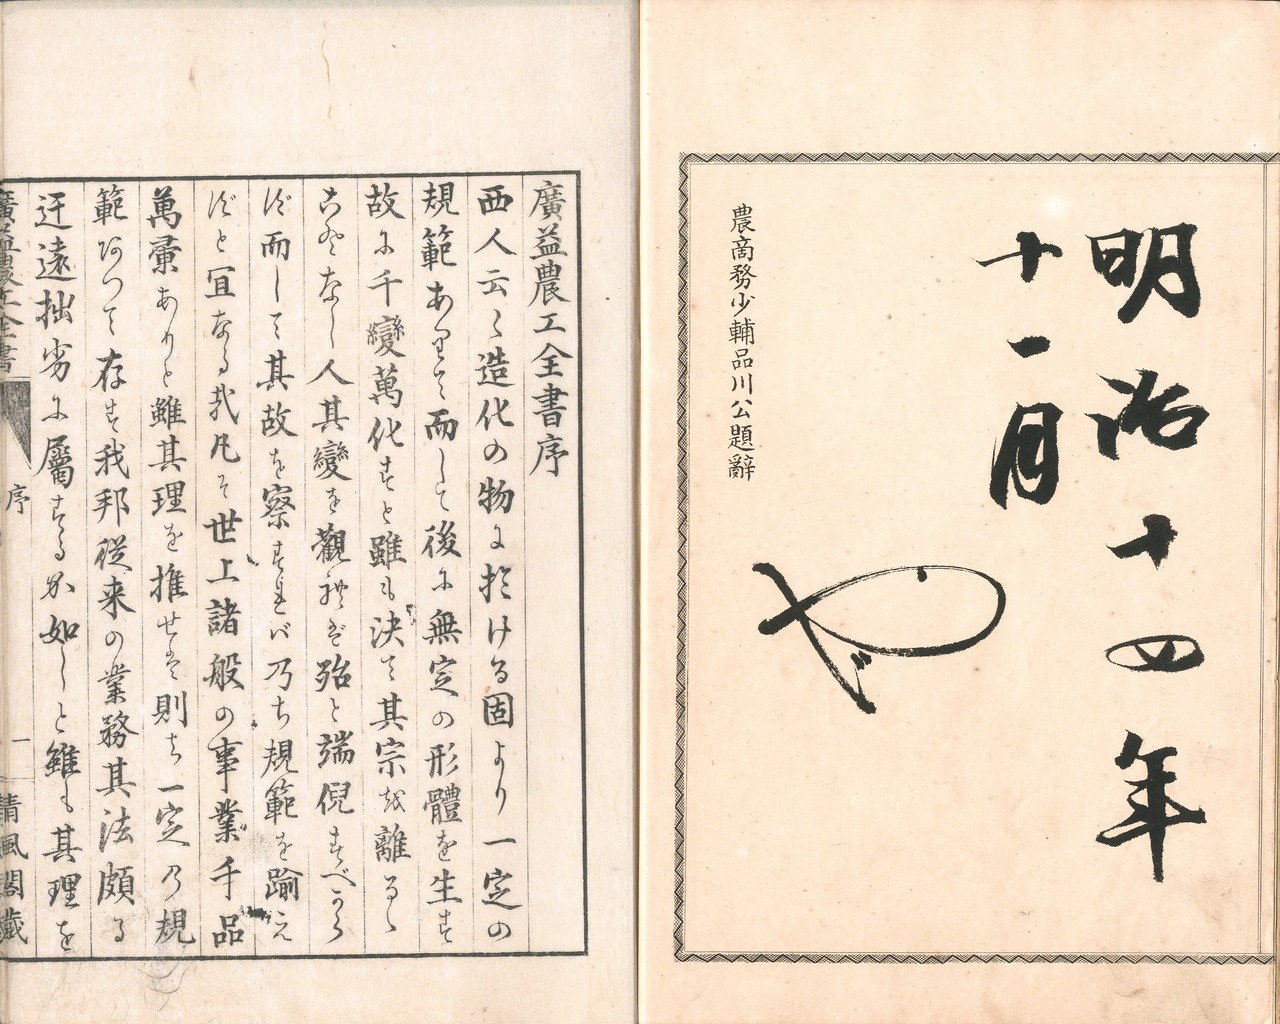 明治十四年
十一月
農商務少輔品川公題辭
廣益農工全書序
西人云く造化の物に於ける固より一定の
規範ありて而して後に無定の形體を生す
故に千變萬化すと雖も決て其宗を離るゝ
ことなし人其變を觀れば殆と端倪すべから
ず而して其故を察すれバ乃ち規範を踰え
ずと宜なる哉凡そ世上諸般の事業千品
萬彙ありと雖其理を推せは則ち一定の規
範ありて存す我邦從来の業務其法頗る
迂遠拙劣に屬するが如しと雖も其理を
廣益農工全書
序
一
清風閣藏